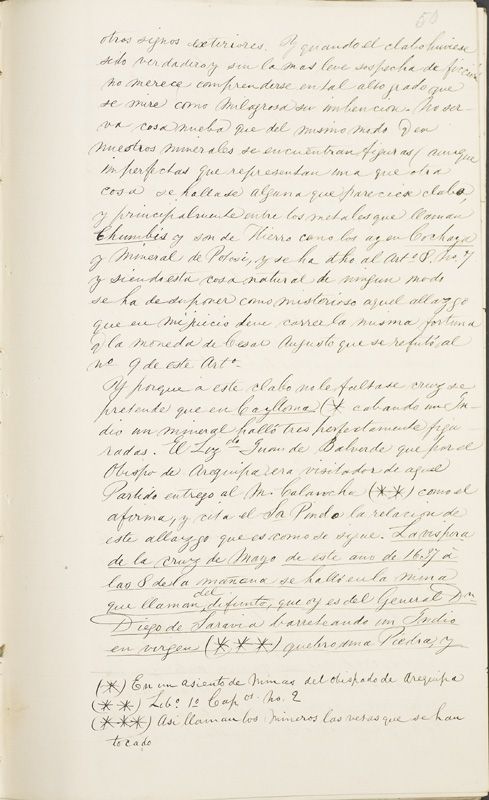 50
otros signos exteriores. Y quando el clabo huviese
sido verdadero y sin la mas leve sospecha de ficcion
no merece comprenderse en tal alto grado que
se mire como milagrosa su imbencion. No ser-
va cosa nueba que del mismo modo q en
nuestros minerales se encuentran figuras (aunque
imperfectas que representan una que otra
cosa se hallase alguna que pareciese clabo,
y principalmente entre los metales que llaman
Chumbis y son de Hierro como los ay en Cochaya
y Mineral de Potosi, y se ha dho al Arto 8. No. 7
y siendo esta cosa natural de ningun modo
se ha de suponer como misterioso aquel allazgo
que en mi juicio deve correr la misma fortuna
q la moneda de Cesar Augusto que se refutó al
no. 9 de este Arto
Y porque a este clabo no le faltase cruz se
pretende que en Caylloma (* cabando un In-
dio un mineral halló tres perfectamente figu-
radas. El Lizdo Juan de Balverde que por el
Obispo de Arequipa era visitador de aquel
Partido entrego al M. Calancha (**) como el
afirma, y cita el Sr Pindo la relacion de
este allazgo que es como se sigue. La vispera
de la cruz de Mayo de este año de 1637 á
las 8 de la mañana se halló en la mina
que llaman del difunto, que oy es del General Dn
Diego de Saravia barreteando un Indio
en virgen (***) quebro una Piedra, y
(*) En un asiento de Minas del obispado de Arequipa
(**) Libo. 1o Capo. No. 2
(***) Asi llaman los mineros las vetas que se han
tocado